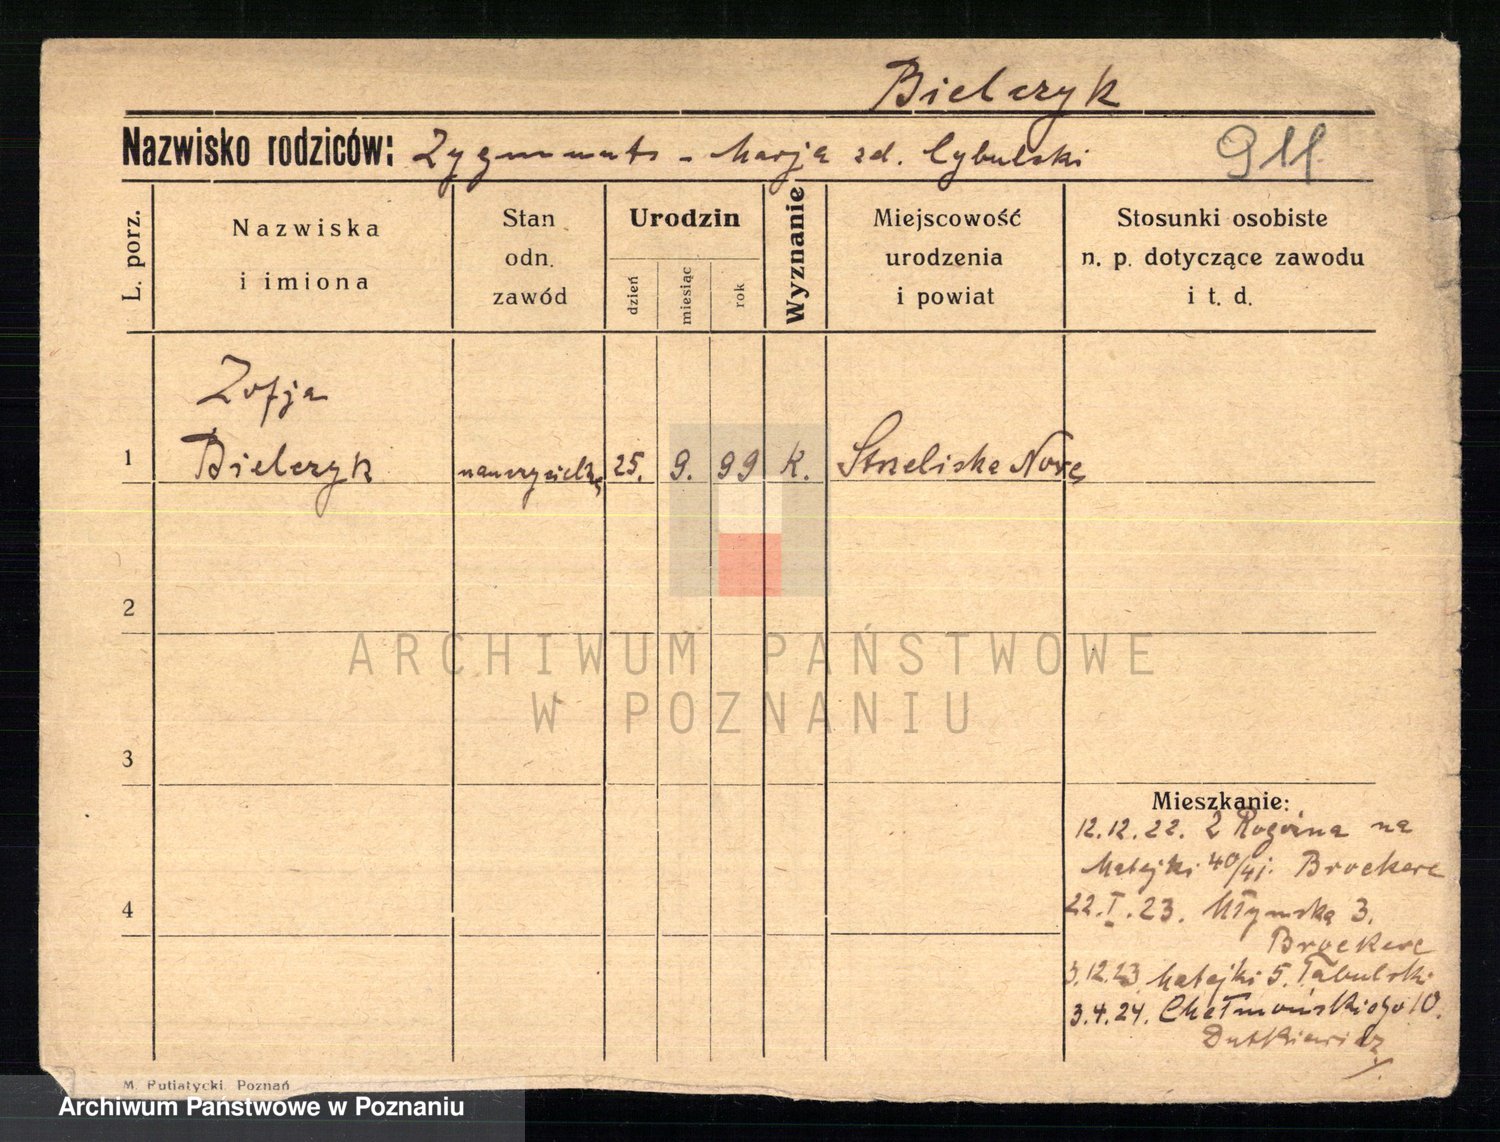 Bielczyk
Nazwisko rodziców: Zygmunt - Marja zd. Cybulski
911.
L. porz.
Nazwiska
i imiona
Stan
odn.
zawód
Urodzin
dzień
miesiąc
rok
Wyznanie
Miejscowość
urodzenia
i powiat
Stosunki osobiste
n. p. dotyczące zawodu
i t. d.
Zofja
1 Bielczyk 25. 9. 99 k. Strzeliska Nowe
2
ARCHIWUM PAŃSTWOWE
W POZNANIU
3
Mieszkanie:
12.12.22. z Rogoźna na
Matejki 40/41. Brockere
4
22.I.23. Młyńska 3.
Brockere
3.12.23. Matejki 5. Tabulski
3.4.24. Chełmońskiego 10.
Dutkiewicz
M. Putiatycki, Poznań
Archiwum Państwowe w Poznaniu